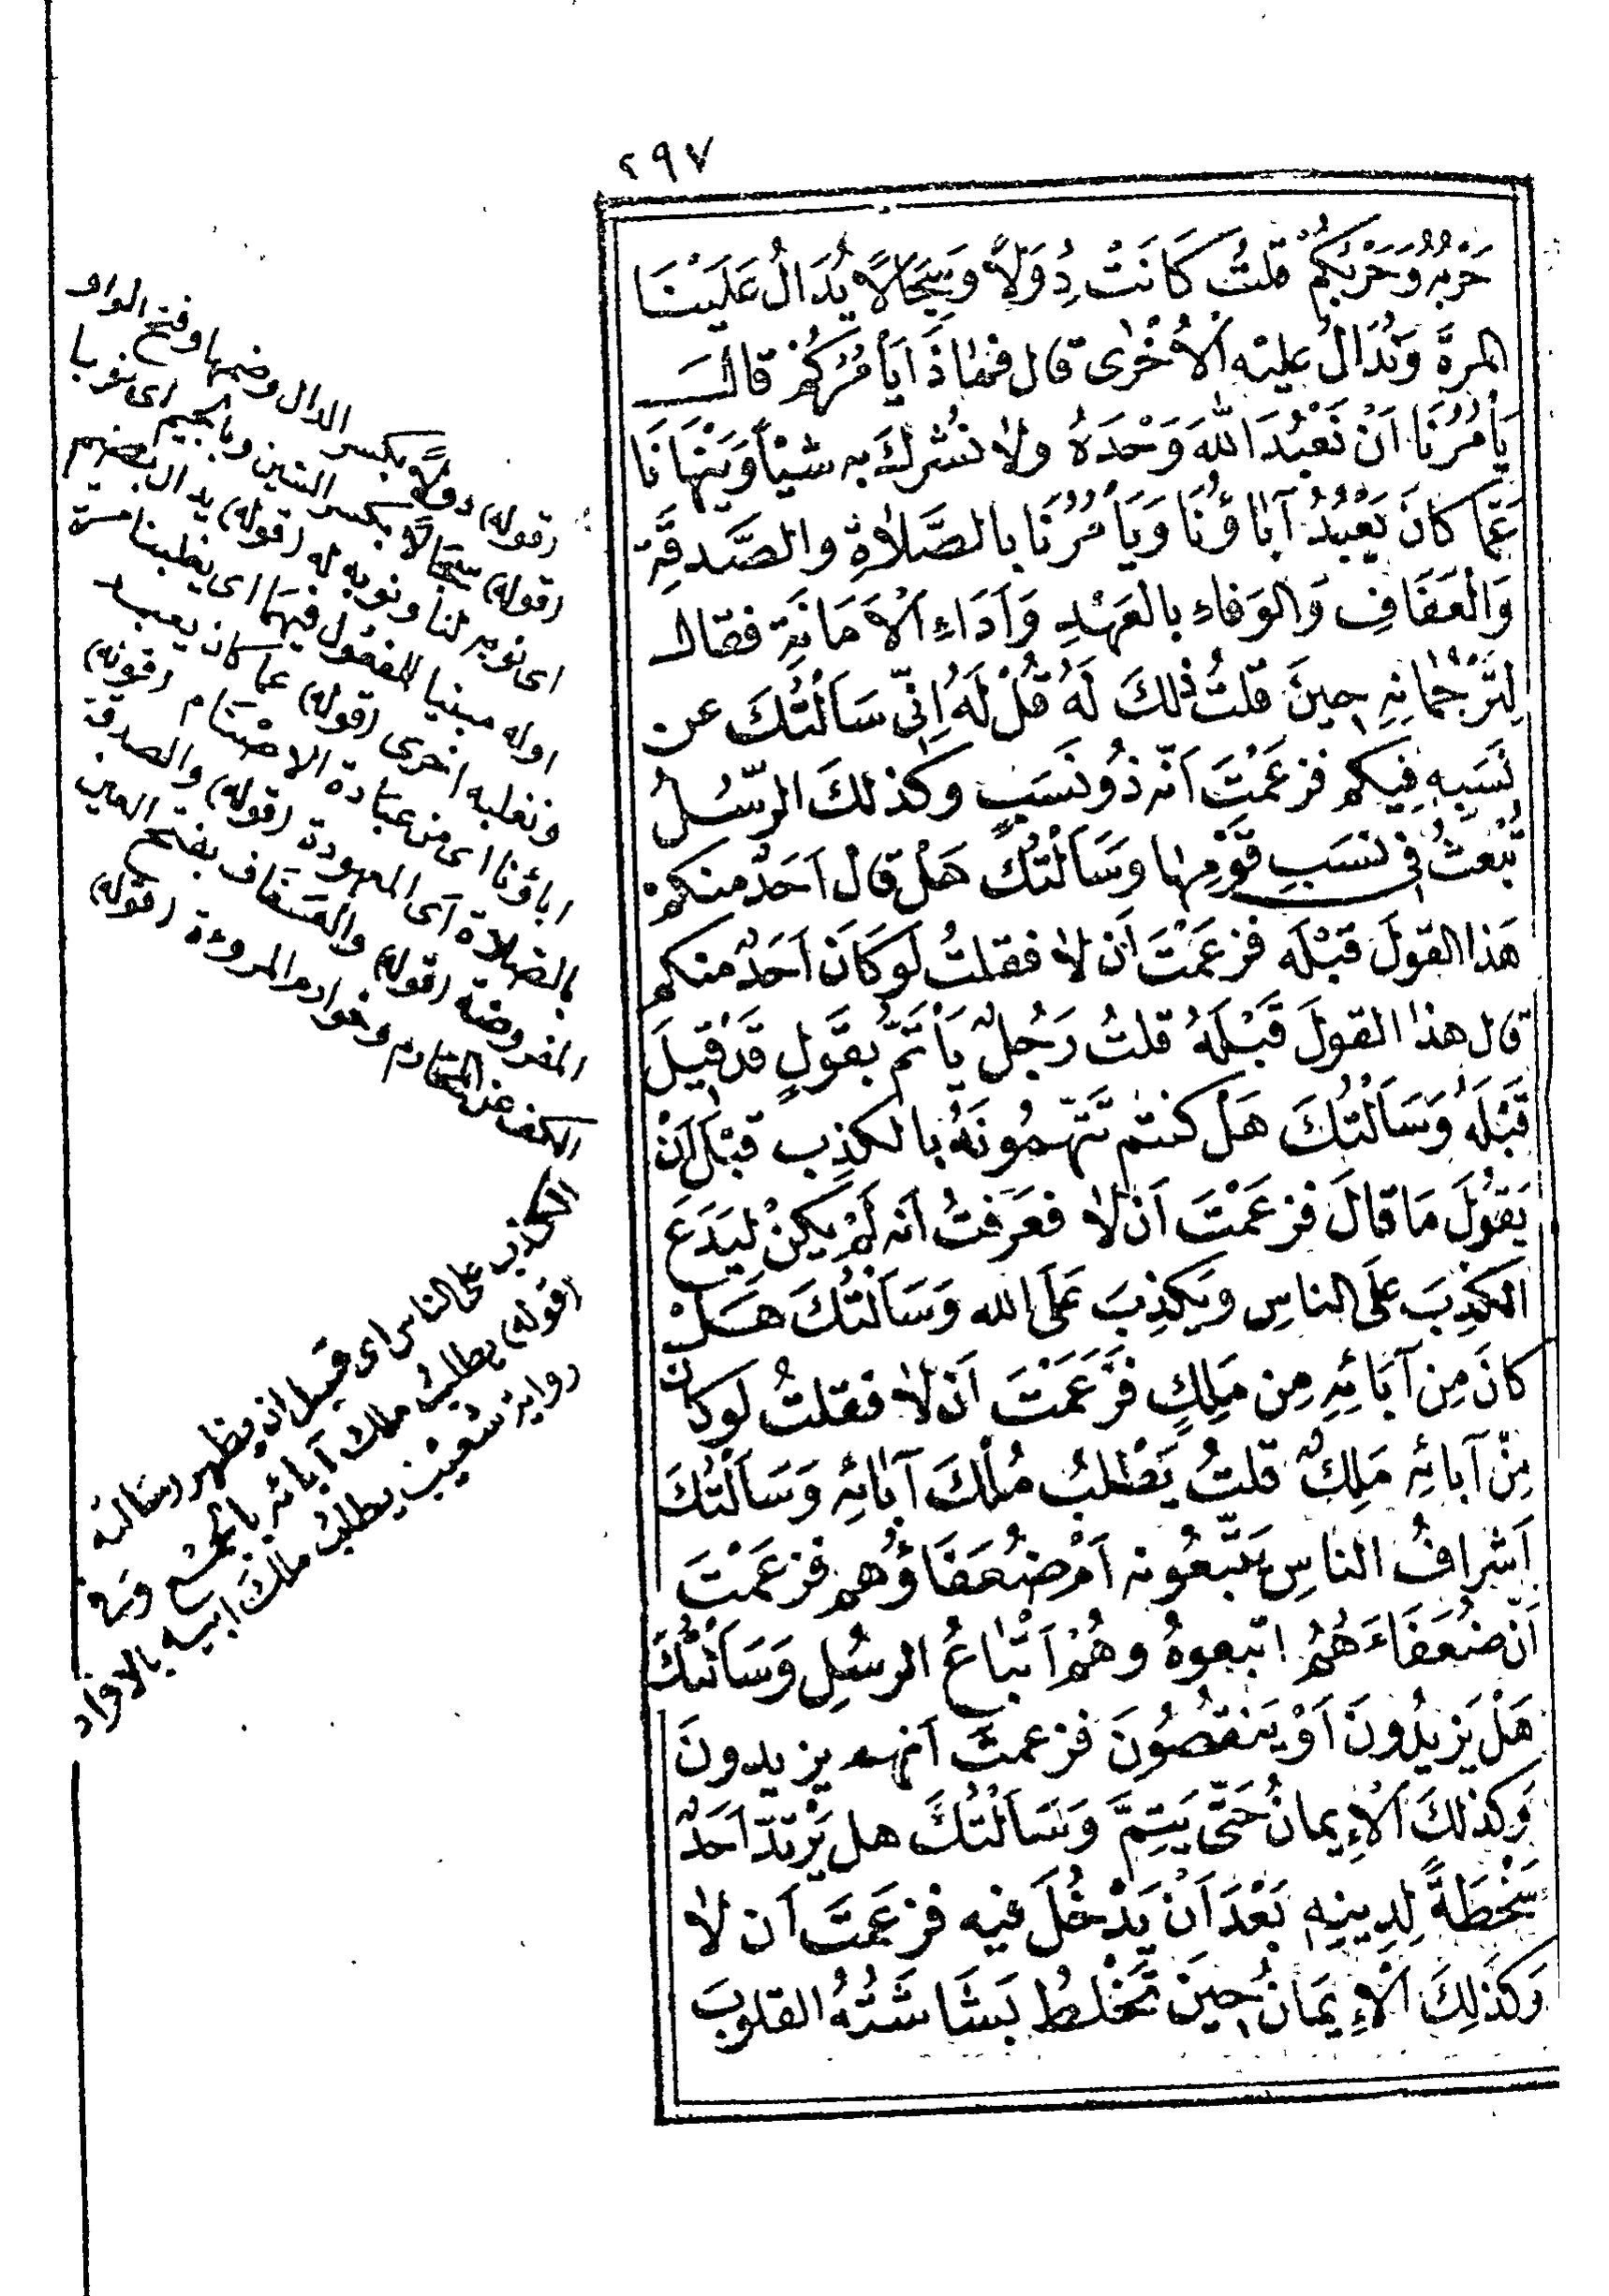 ٢٩٧
حَرْبُهُ وَحَرْبُكُمْ قلتُ كَانَتْ دُِوَلًا وَسِجَالًا يُدَالُ عَلَيْنَا
المرةَ وَنُدَالُ عليْهِ اَلْأُخْرٰى قال فمَاذَا يَأْمُرُكُمْ قال
يَأْمُرُنَا اَنْ نَعْبُدَ اللّٰهَ وَحْدَهُ ولا نُشْرِكَ به شيْأً وَيَنْهَانَا
عَمَّا كانَ يَعْبُدُ آبَاؤُنَا وَيَأْمُرُنَا بالصَّلَاةِ والصَّدقَةِ
وَالْعَفَافِ وَالوَفاءِ بالعَهْدِ وَاَدَاءِ اَلْأَمَانَةِ فقال
لِتَرْجُمَانِهِ حِينَ قلتُ ذٰلكَ لَهُ قُلْ لَهُ اِنِّى سَأَلْتُكَ عن
نَسَبِهِ فِيكم فزعَمْتَ اَنّه ذُو نَسَبٍ وكَذلكَ الرّسُلُ
تُبْعَثُ فى نسَبِ قَوْمِهَا وسَأَلْتُكَ هَلْ قال اَحَدٌ منكمْ
هَذا القولَ قَبْلَه فزعَمْتَ اَن لا فقلتُ لَو كَانَ اَحَدٌ منكم
قال هذا القولَ قَبْلَهُ قلتُ رَجُلٌ يَأْتَمُّ بقَولٍ قَدْ قِيلَ
قَبْلَهُ وَسَأَلْتُكَ هَلْ كنتم تَتَّهِمُونَهُ بالكَذِبِ قبْلَ اَنْ
يَقُولَ مَا قالَ فزعَمْتَ اَن لا فعَرَفتُ اَنه لَمْ يكنْ لِيَدَعَ
الكَذِبَ عَلَى الناسِ ويَكذِبَ عَلَى الله وَسَأَلْتُكَ هَلْ
كانَ مِن آبَائِهِ مِن مَلِكٍ فزَعَمْتَ اَن لا فقلتُ لَو كان
مِنْ آبائِه مَلِكٌ قلتُ يَطْلبُ مُلْكَ آبَائِه وَسَأَلْتُكَ
اَشْرافُ الناسِ يَتَّبِعُونه اَمْ ضُعَفَاؤُهم فزعَمْتَ
اَنّ ضُعَفَاءَهُمُ اتبعوهُ وهُمْ اَتْبَاعُ الرسُلِ وَسَأَلْتُكَ
هَلْ يَزِيدُونَ اَوْ يَنْقُصُونَ فزعمتَ اَنهم يزيدونَ
وَكذلكَ اَلْإِيمانُ حَتَّى يَتِمَّ وَسَأَلْتُكَ هل يَرْتدّ اَحَدٌ
سَخْطَةً لِدِينِهِ بَعْدَ اَنْ يَدْخُلَ فيه فزعَمْتَ اَن لا
وَكَذَلِكَ اَلْإِيمَانُ حِينَ تَخْلطُ بَشَاشَتُهُ القلوبَ
(قوله) دولًا بكسر الدال وضمها وفتح الواو
(قوله) سِجَالًا بكسر السين وبالجيم اى نوبا
اى نوبة لنا ونوبه له (قوله) يدال بضم
اوله مبنيا للمفعول فيهما اى يغلبنا مرة
ونغلبه اخرى (قوله) عما كان يعبد
اباؤنا اى من عبادة الاصنام (قوله)
بالصلاة اى المعهودة (قوله) والصدقة
المفروضة (قوله) والعفاف بفتح العين
الكف عن المحارم وخوارم المروءة (قوله)
الكذب على الناس اى قبل ان يظهر رسالته
(قوله) يطلب ملك آبائه بالجمع وفى
رواية شعيب يطلب ملك ابيه بالافراد